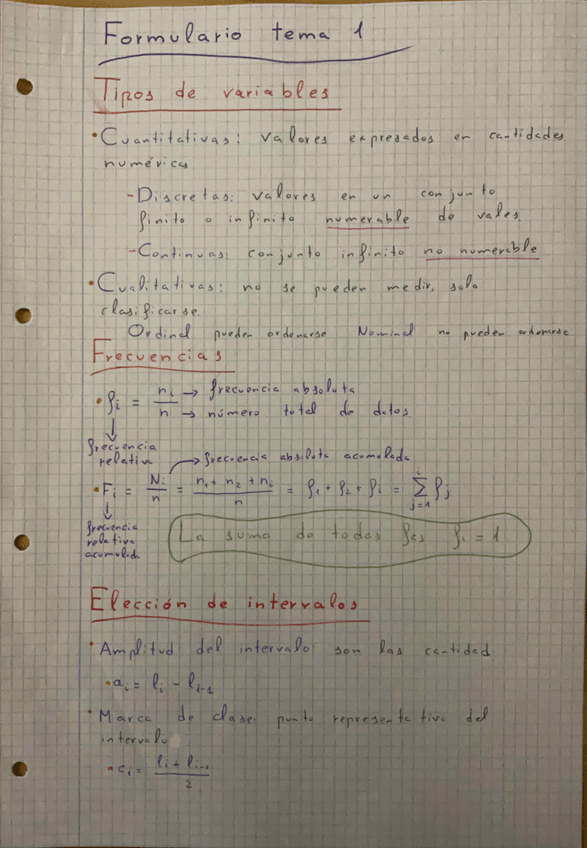 Formulario tema 1
Tipos de variables
• Cuantitativas: valores expresados en cantidades
numéricas
- Discretas: valores en un conjunto
finito o infinito numerable de vales.
- Continuas: conjunto infinito no numerable
• Cualitativas: no se pueden medir, solo
clasificarse.
Ordinal pueden ordenarse Nominal no pueden ordenarse
Frecuencias
• fi = ni/n → frecuencia absoluta
→ número total de datos.
↓
frecuencia
relativa
→ frecuencia absoluta acumulada
• Fi = Ni/n = n1 + n2 + ni / n = f1 + f2 + fi = Σ fj
i
j=1
↓
frecuencia
relativa
acumulada
La suma de todas las fi = 1
Elección de intervalos
• Amplitud del intervalo: son las cantidad
• ai = li - li-1
• Marca de clase: punto representativo del
intervalo
• ci = li + li-1 / 2